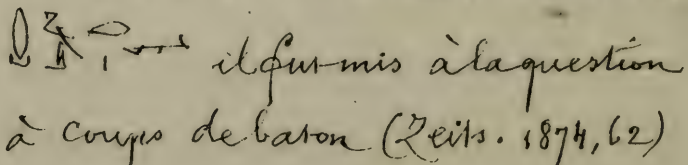 il fut mis à la question
à coups de baton (Zeits. 1874, 62)